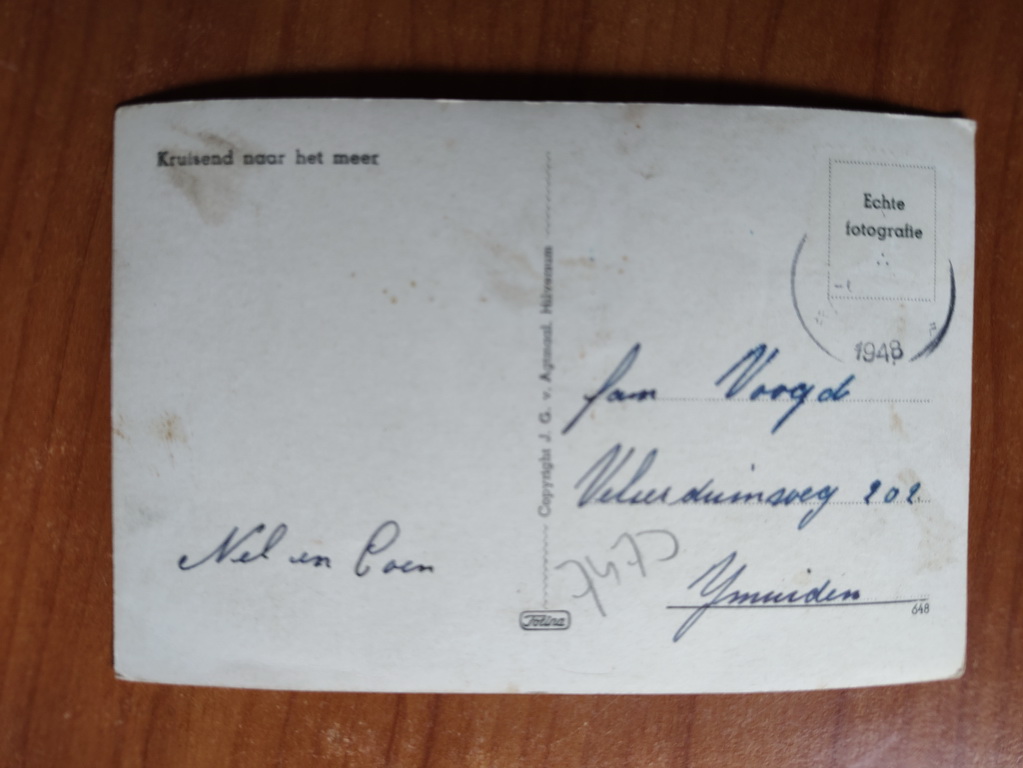 Kruisend naar het meer
Echte
fotografie
1948
Copyright J. G. v. Agtmaal, Hilversum
fam Voogd
Velserduinweg 202
Ymuiden
Nel en Coen
7475
648